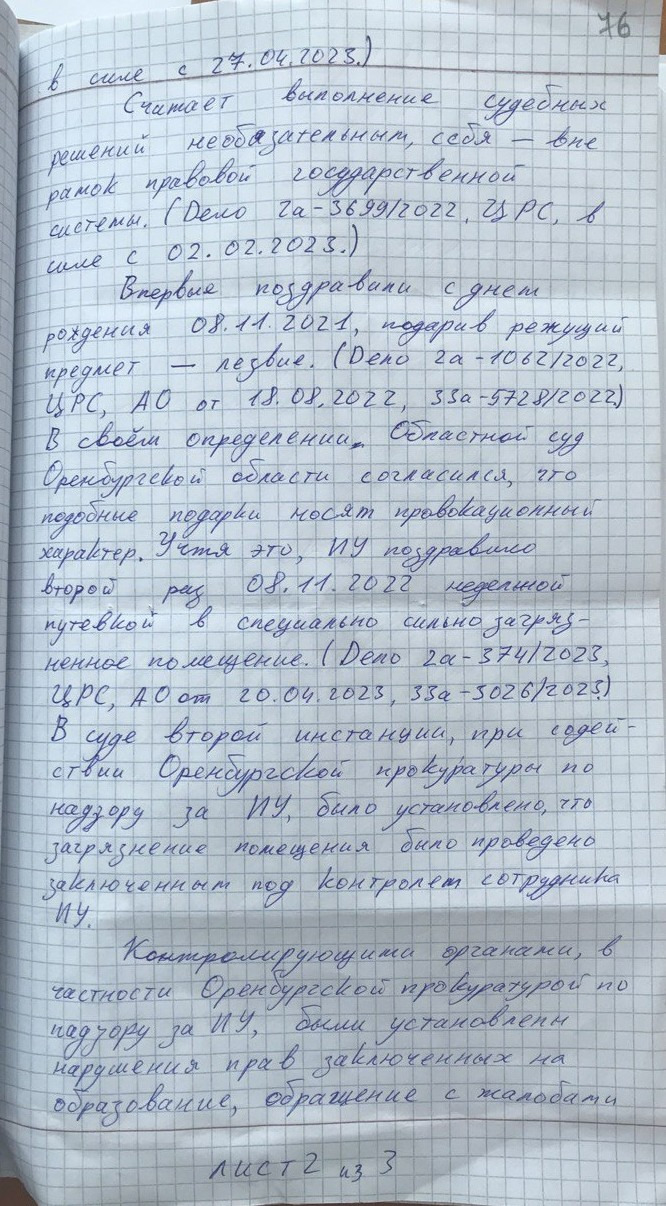 76
в силе с 27.04.2023.)
Считает выполнение судебных
решений необязательным, себя — вне
рамок правовой государственной
системы. (Дело 2а-3699/2022, ЦРС, в
силе с 02.02.2023.)
Впервые поздравили с днем
рождения 08.11.2021, подарив режущий
предмет — лезвие. (Дело 2а-1062/2022,
ЦРС, АО от 18.08.2022, 33а-5728/2022)
В своём определении. Областной суд
Оренбургской области согласился, что
подобные подарки носят провокационный
характер. Учтя это, ИУ поздравило
второй раз 08.11.2022 недельной
путевкой в специально сильно загряз-
ненное помещение. (Дело 2а-374/2023,
ЦРС, АО от 20.04.2023, 33а-3026/2023)
В суде второй инстанции, при содей-
ствии Оренбургской прокуратуры по
надзору за ИУ, было установлено, что
загрязнение помещения было проведено
заключенным под контролем сотрудника
ИУ.
Контролирующими органами, в
частности Оренбургской прокуратурой по
надзору за ИУ, были установлены
нарушения прав заключенных на
образование, обращение с жалобами
лист 2 из 3